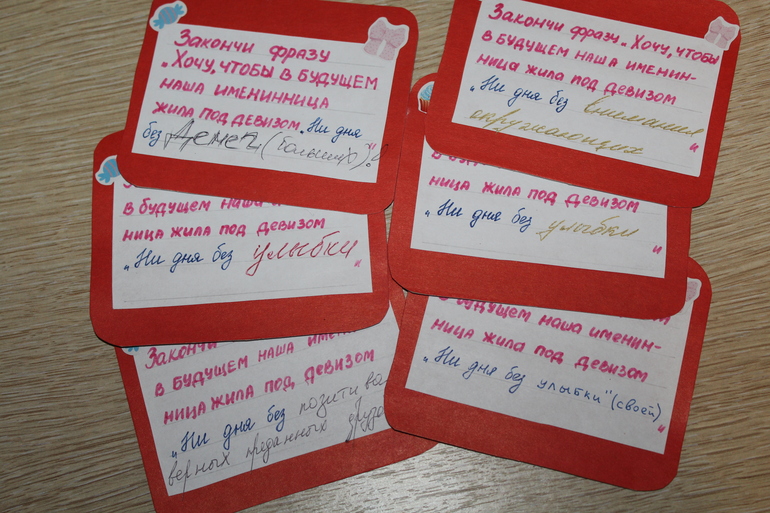 Закончи фразу
„Хочу, чтобы в будущем
наша именинница
жила под девизом „Ни дня
без денег (больших)!"
Закончи фразу „Хочу, чтобы
в будущем наша именин-
ница жила под девизом
„Ни дня без внимания
окружающих"
в будущем наша
ница жила под девизом
„Ни дня без улыбки"
ница жила под девизом
„Ни дня без улыбки"
Закончи
в будущем наша имен
ница жила под девизом
„Ни дня без позитива
верных преданных друз
в будущем наша именин-
ница жила под девизом
„Ни дня без улыбки" (своей)"